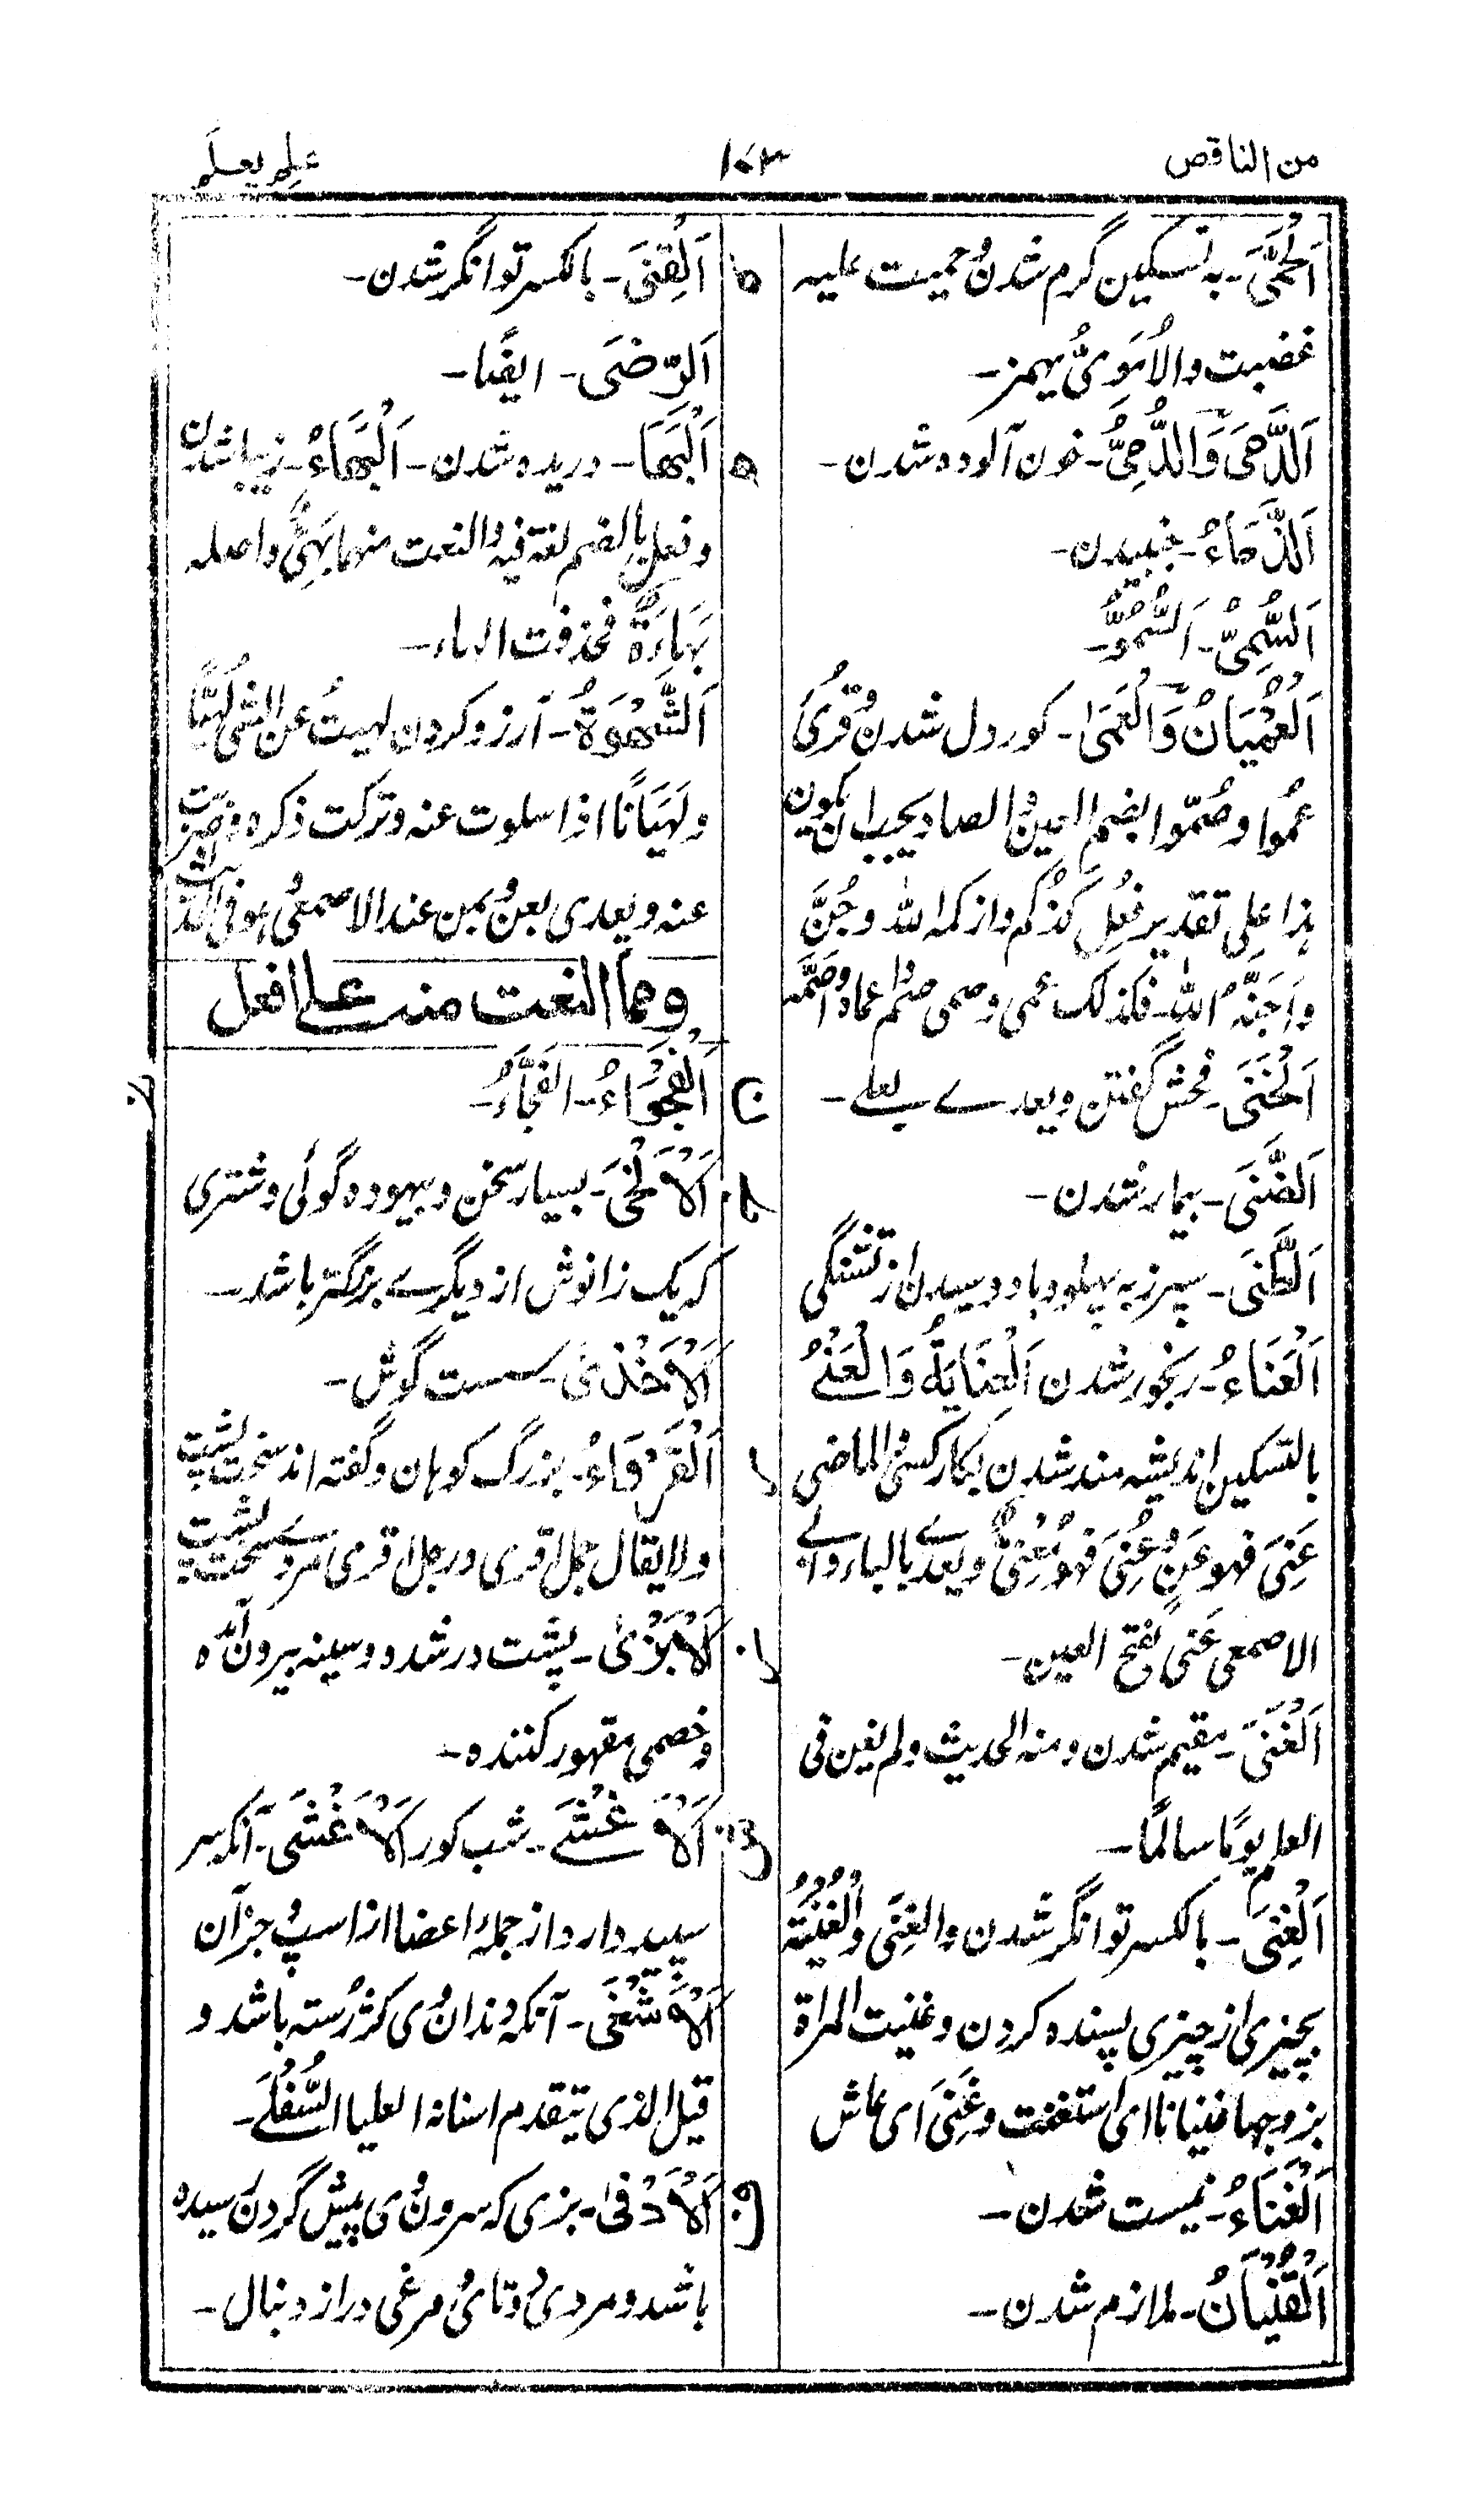 من الناقص
١٠٣
علِم يعلَم
اَلْحُمَّى۔ به تسکین گرم شدن وحمیت علیه
غضبت والاُمَوِیُّ یهمز۔
اَلدَّمَی وَالدُّمِیُّ۔ خون آلوده شدن۔
اَلذَّمَاءُ۔ جنبیدن۔
اَلسُّمِیُّ۔ اَلسُّمُوُّ۔
اَلْعُمْیَانُ وَالْعَمَی۔ کور دل شدن وقُرِئَ
عُمُوا وصُمّوا بضم العین والصاد یجب ان یکون
هذا علی تقدیر فُعِلَ کزُکم وازکمه الله وجُنَّ
واَجَنَّه الله۔ فکذلک عمی وصمی صُمَّ اعماه واصَمَّه
اَلْخَنَی۔ فحش گفتن ویعدے بعلے۔
اَلضَّنَی۔ بیمار شدن۔
اَلطَّنَی۔ سپرز به پهلو وا دوسیدن از تشنگی
اَلْعَنَاءُ۔ رنجور شدن اَلْعِنَایَةُ وَالْعَنْےُ
بالتسکین اندیشه مند شدن بکار کسی والماضی
عَنِیَ فهو عَنٍ وعُنِیَ فهو مُعْنِیٌّ ویعدے بالباء وابے
الاصمعی عَنی بفتح العین۔
اَلْغَنَی۔ مقیم شدن ومنه الحدیث ولم یغن فی
العلم یومًا سالمًا۔
اَلْغِنَی۔ بالکسر توانگر شدن والغِنَی والْغُنْیَةُ
بچیزی از چیزی بسنده کردن وغنیت المراة
بزوجها غنیانا ای استغنت وغَنِیَ ای عاش
اَلْفَنَاءُ۔ نیست شدن۔
اَلْقُنْیَانُ۔ ملازم شدن۔
اَلْقِنَی۔ بالکسر توانگر شدن۔
اَلرِّضَی۔ ایضًا۔
اَلْبَهَا۔ دریده شدن۔ اَلْبَهَاءُ۔ زیبا شدن
وفعل بالضم لغة فیه والنعت منهما بَهِیٌّ واصله
بَهَاءَةٌ فحذفت الهاء۔
اَلشَّهْوَةُ۔ آرزو کردن لهیتُ عن الشی لُهِیًّا
ولَهَیَانًا اذا سلوت عنه وترکت ذکره وضربت
عنه ویعدی بعن وبمن عند الاصمعی هو فی
ومما النعت منه علے افعل
اَلْفَجْوَاءُ۔ الفَجَّاءُ۔
اَلْاَلْخَی۔ بسیار سخن وبیهوده گوئی وشتری
که یک زانوش از دیگرے بزرگتر باشد۔
اَلْاَخْذَی۔ سست گوش۔
اَلْقَرْوَاءُ۔ بزرگ کوهان وگفته اند سخت پشت
ولایقال جمل اقری ورجل اقری مردے سخت پشت
اَلْاَبْزَی۔ پشت در شده وسینه بیرون آمده
وخصمی مقهور کننده۔
اَلْاَعْشَےٰ۔ شب کور اَلْاَغْشَی۔ آنکه سر
سپید دارد از جملهٔ اعضا از اسپ وجز آن
اَلْاَشْغَی۔ آنکه دندان وی کژ رُسته باشد و
قیل الذی یتقدم اسنانه العلیا السُّفْلَے۔
اَلْاَدْفَی۔ بزی که سرون وی پیش گردن رسیده
باشد ومردی دوتای ومرغی دراز دنبال۔